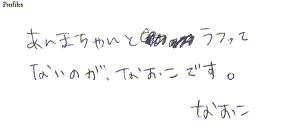 Profiles
あいまちゃんと うつって
ないのが、なおこです。
なおこ